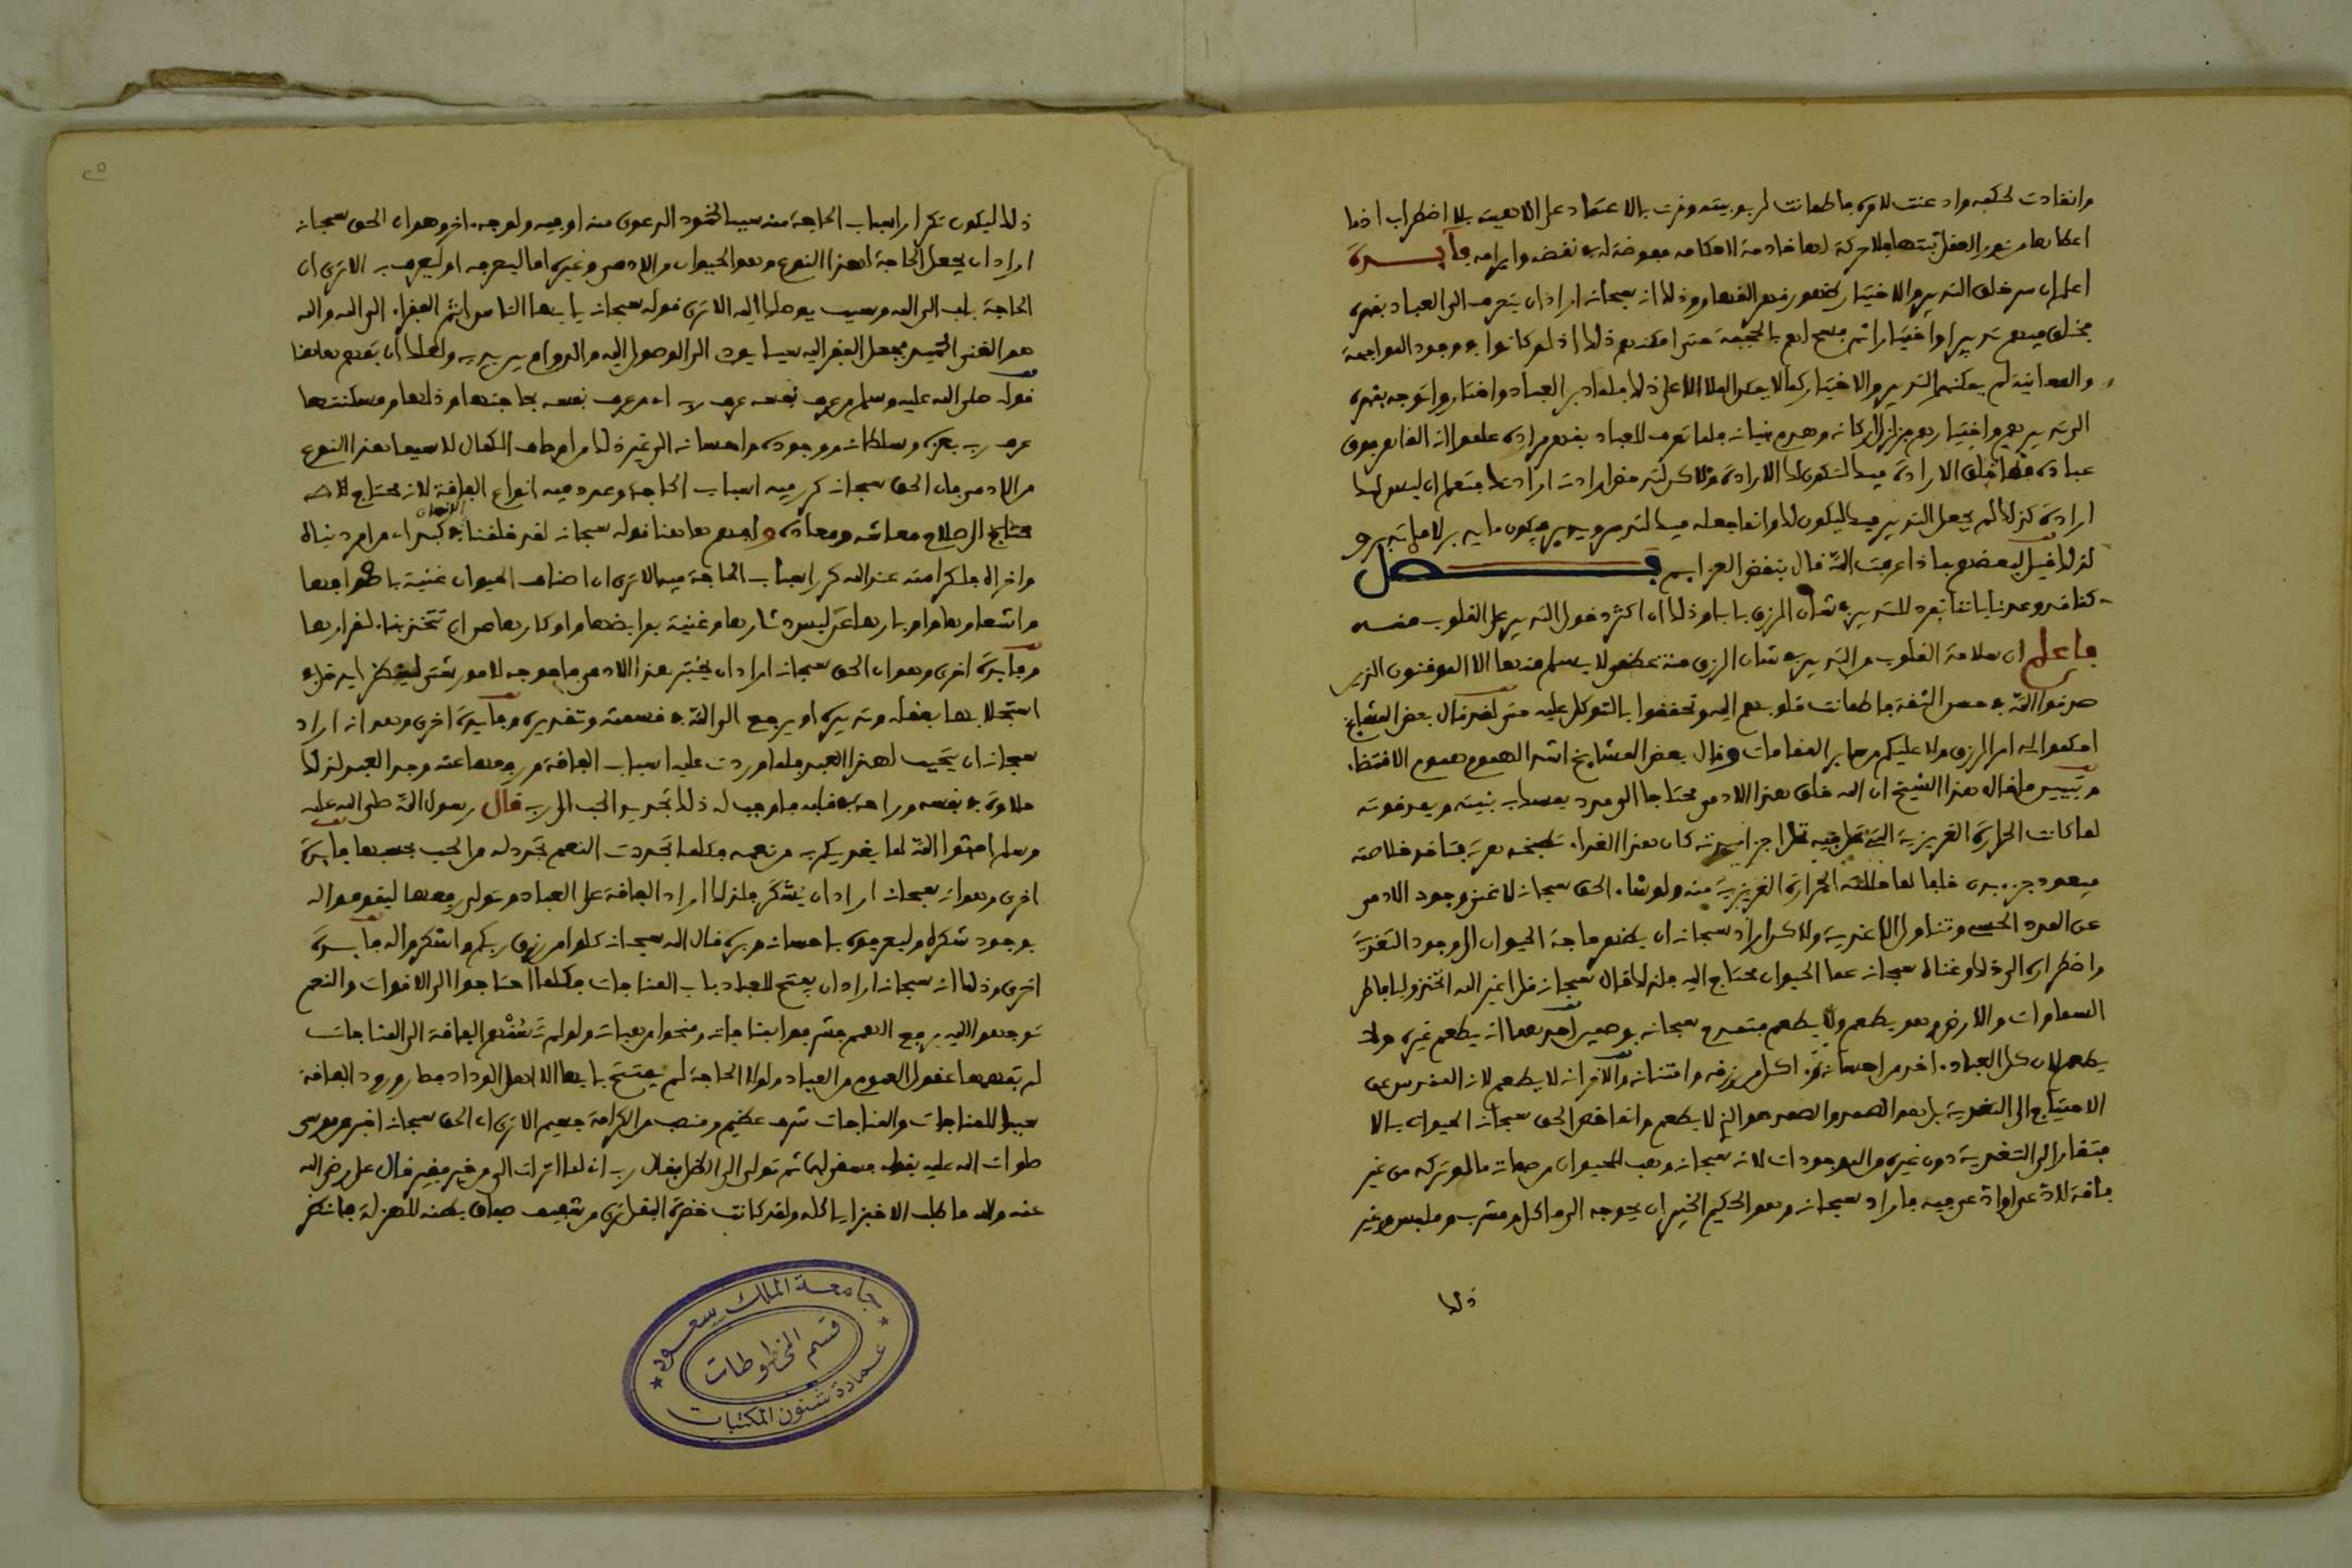 وانقادت لحكمه واذعنت لامره فاطمانت لربوبيته وقرت بالاعتماد على الاهيته بلا اضطراب اذ ما
اعطاها من نور العقل ثبتها فلا حركة لها خادمة لاحكامه مفوضة له في نقضه وابرامه فائدة
اعلم ان سر خلق التدبير والاختيار ظهور قهر القهار وذلك انه سبحانه اراد ان يتعرف الى العباد بقهره
فخلق فيهم تدبيرا واختيارا ثم فسح لهم بالحجبة حتى امكنهم ذلك اذ لو كانوا في وجود المواجهة
والمعاينة لم يمكنهم التدبير والاختيار كما لا يمكن الملا الاعلى ذلك فلما دبر العباد واختاروا توجه بقهره
الى تدبيرهم واختيارهم فزلزل اركانه وهدم بنيانه فلما تعرف للعباد بقهر مراده علموا انه القاهر فوق
عباده فما خلق الارادة فيك لتكون لك الارادة ولاكن لتدحض ارادته ارادتك فتعلم ان ليس لك
ارادة كذلك لم يجعل التدبير فيك ليكون لك وانما جعله فيك لتدبر ويدبر فيكون ما يدبر لا ما تدبر و
لذلك قيل لبعضهم بماذا عرفت الله قال بنقض العزايم فصل
كنا قد وعدنا باننا نفرد للتدبير في شان الرزق بابا وذلك ان اكثر دخول التدبير على القلوب منه
فاعلم ان سلامة القلوب من التدبير في شان الرزق منة عظمى لا يسلم منها الا الموفقون الذين
صدقوا الله في حسن الثقة فاطمانت قلوبهم اليه وتحققوا بالتوكل عليه حتى لقد قال بعض المشايخ
احكموا لي امر الرزق ولا عليكم من ساير المقامات وقال بعض المشايخ اشد الهموم هموم الاقتضاء
وتبيين ما قاله هذا الشيخ ان الله خلق هذا الادمي محتاجا الى مدد يمسك بنيته ويمد قوته
لما كانت الحرارة الغريزية التي فيه تحلل اجزاء بدنه كان هذا الغذاء تطبخه معدته فتاخذ خلاصته
فيعود جزء بدن خلفا لما حللته الحرارة الغريزية منه ولو شاء الحق سبحانه لاغنى وجود الادمي
عن المدد الحسي وتناول الاغذية ولاكن اراد سبحانه ان يظهر حاجة الحيوان الى وجود التغذية
واضطراره الى ذلك وغناه سبحانه عما الحيوان محتاج اليه فلذلك قال سبحانه قل اغير الله اتخذ وليا فاطر
السماوات والارض وهو يطعم ولا يطعم فتمدح سبحانه بوصفين احدهما انه يطعم غيره ولا
يطعم لان كل العباد اخذ من احسانه واكل من رزقه وامتنانه والاخر انه لا يطعم لانه المقدس عن
الاحتياج الى التغذية بل هو الصمد والصمد هو الذي لا يطعم وانما خص الحق سبحانه الحيوان بالا
فتقار الى التغذية دون غيره من الموجودات لانه سبحانه وهب للحيوان من صفاته ما لو تركه من غير
فاقة لادعى او ادعي فيه فاراد سبحانه وهو الحكيم الخبير ان يحوجه الى ماكل ومشرب وملبس وغير
ذلك
ذلك ليكون تكرار اسباب الحاجة منه سببا لخمود الدعوى منه او فيه ولوجه اخر وهو ان الحق سبحانه
اراد ان يجعل الحاجة لهذا النوع وهو الحيوان من الادمي وغيره اما ليعرفه او ليعرف به الا ترى ان
الحاجة باب الى الله وسبب يوصلك اليه الا ترى قوله سبحانه يا ايها الناس انتم الفقراء الى الله والله
هو الغني الحميد فجعل الفقر اليه سببا يودي الى الوصول اليه والدوام بين يديه ولعلك ان تفهم هاهنا
قوله صلى الله عليه وسلم من عرف نفسه عرف ربه اي من عرف نفسه بحاجتها وذلها ومسكنتها
عرف ربه بعزه وسلطانه وجوده واحسانه الى غير ذلك من اوصاف الكمال لا سيما هذا النوع
من الادمي فان الحق سبحانه كرر فيه اسباب الحاجة وعدد فيه انواع الفاقة لانه محتاج
الى صلاح معاشه ومعاده وافهم هاهنا قوله سبحانه لقد خلقنا الانسان في كبد اي من امر دنياه
واخراه فلكرامته عند الله كرر اسباب الحاجة فيه الا ترى ان اصناف الحيوان غنية باصوافها
واشعارها واوبارها عن لبس دثارها وغنية بمرابضها واوكارها عن ان تتخذ بناء لقرارها
وفائدة اخرى وهو ان الحق سبحانه اراد ان يختبر هذا الادمي فاحوجه لامور شتى لينظر ايدخل في
استجلابها بعقله وتدبيره او يرجع الى الله في قسمته وتقديره وفائدة اخرى وهو انه اراد
سبحانه ان يتحبب لهذا العبد فلما وردت عليه اسباب الفاقة ورفعها عنه وجد العبد لذلك
حلاوة في نفسه وراحة في قلبه فاوجب له ذلك تجديد الحب لربه قال رسول الله صلى الله عليه
وسلم احبوا الله لما يغذيكم به من نعمه فكلما تجددت النعم تجدد له من الحب بحسبها فائدة
اخرى وهو انه سبحانه اراد ان يشكر فلذلك اورد الفاقة على العباد وتولى رفعها ليقوموا له
بوجود شكره وليعرفوه باحسانه وبره قال الله سبحانه كلوا من رزق ربكم واشكروا له فائدة
اخرى وذلك انه سبحانه اراد ان يفتح للعباد باب المناجات فكلما احتاجوا الى الاقوات والنعم
توجهوا اليه برفع الهمم فشرفوا بمناجاته ومنحوا من هباته ولو لم تسقهم الفاقة الى المناجات
لم يفهمها عقول العموم من العباد ولولا الحاجة لم يستفتح بابها الا اهل الوداد فصار ورود الفاقة
سببا للمناجات والمناجات شرف عظيم ومنصب من الكرامة جسيم الا ترى ان الحق سبحانه اخبر عن موسى
صلوات الله عليه بقوله فسقى لهما ثم تولى الى الظل فقال رب اني لما انزلت الي من خير فقير قال علي رضي الله
عنه والله ما طلب الا خبزا ياكله ولقد كانت خضرة البقل ترى من شفيف صفاق بطنه لهزاله فانظر
جامعة الملك سعود
قسم المخطوطات
عمادة شئون المكتبات